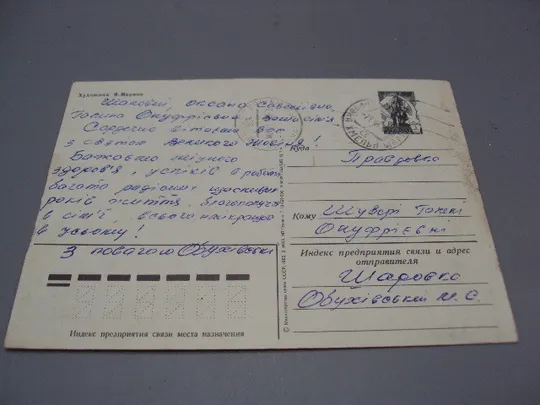 Художник В. Мартов
Шановні, оксана Савовівна,
Галина Онуфріївна, ваша сім'я.
Сердечно вітаєм вас
з святом Великого Жовтня!
Бажаємо міцного
здоров'я, успіхів в роботі
багато радісних щасливих
років життя, благополуччя
в сім'ї, всього найкращого
в усьому!
З повагою Обухівські
Индекс предприятия связи места назначения
Куда
Правдовка
Кому Шуварі Галині
Онуфріївні
Индекс предприятия связи и адрес
отправителя
Шаровка
Обухівський М. С.